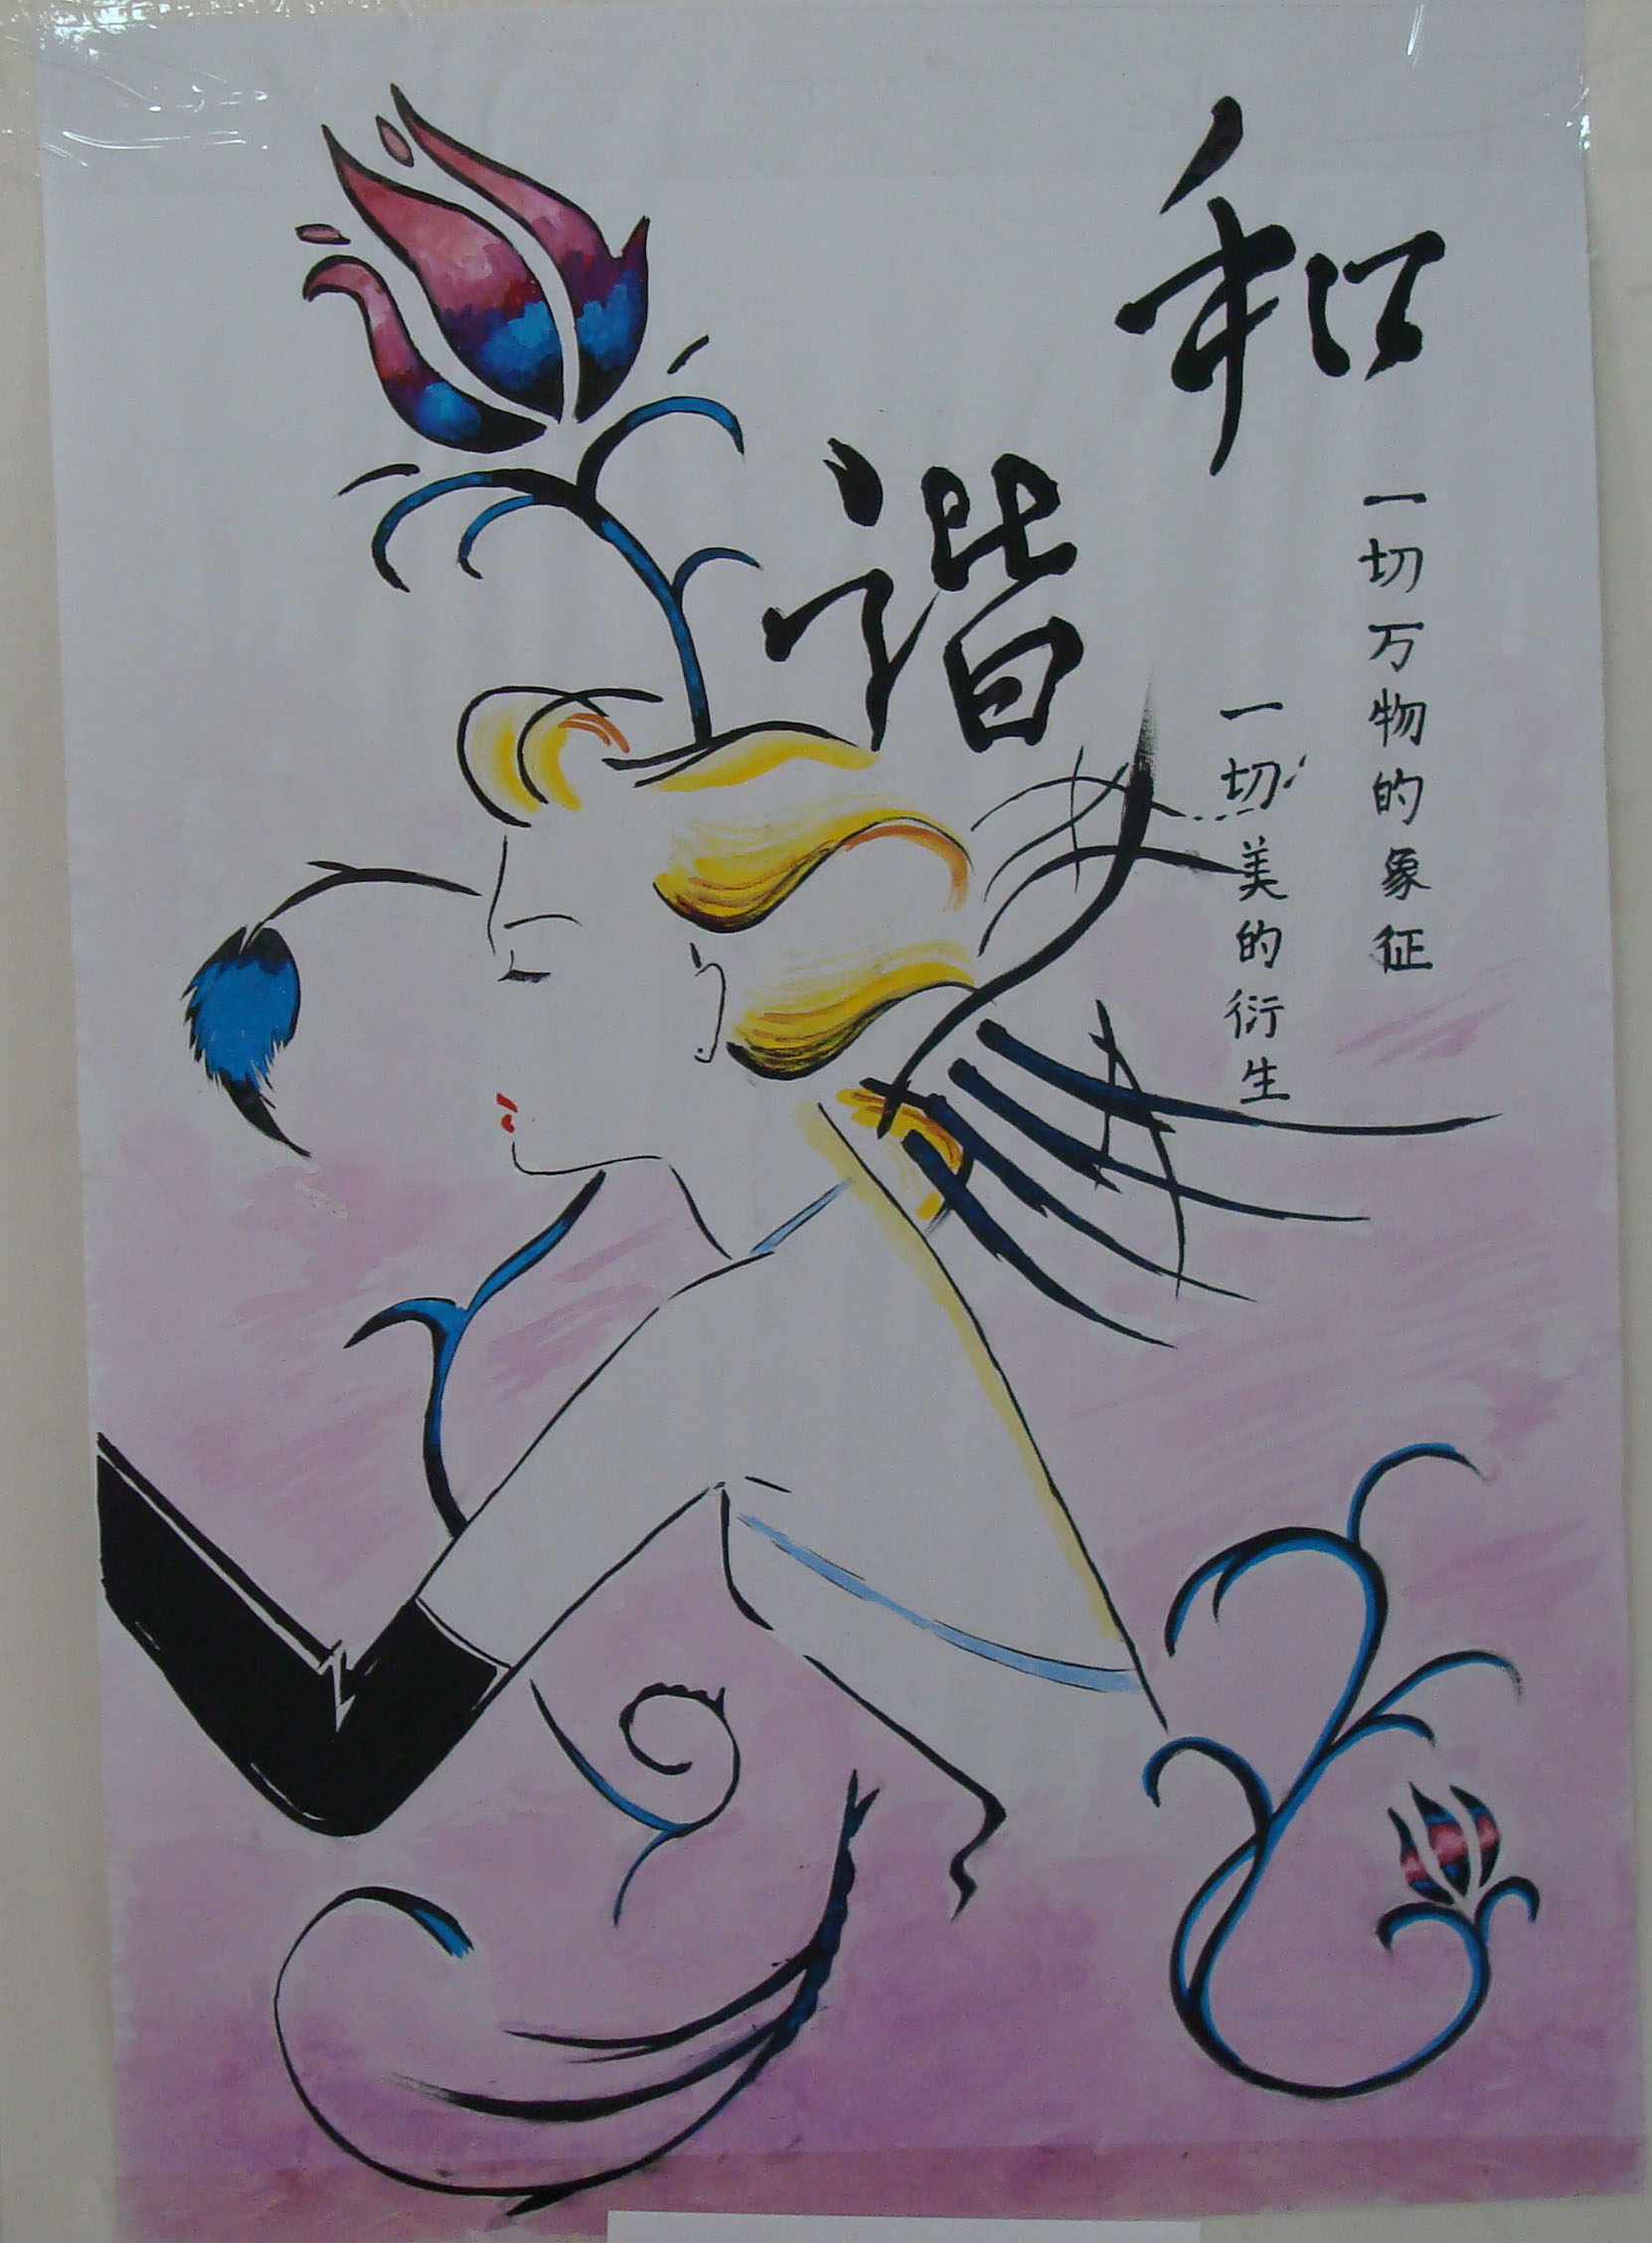 和
谐
一切万物的象征
一切美的衍生